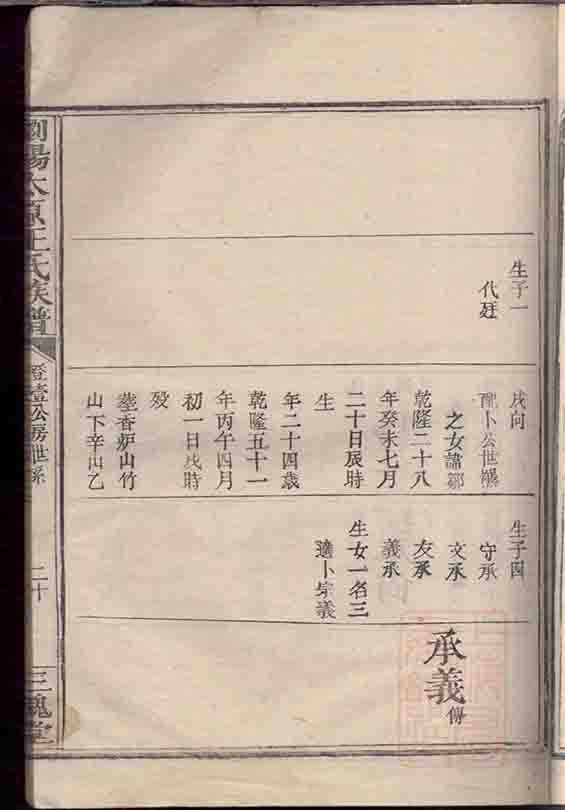 生子一
代廷
戌向
配卜公世
之女諱鄒
乾隆二十八
年癸未七月
二十日辰時
生
年二十四歲
乾隆五十一
年丙午四月
初一日戌時
歿
塟香炉山竹
山下辛山乙
生子四
守承
文承
友承
義承
生女一名三
適卜宗義
承義
傳
瀏陽太原王氏族譜
公房世系
二十
三槐堂